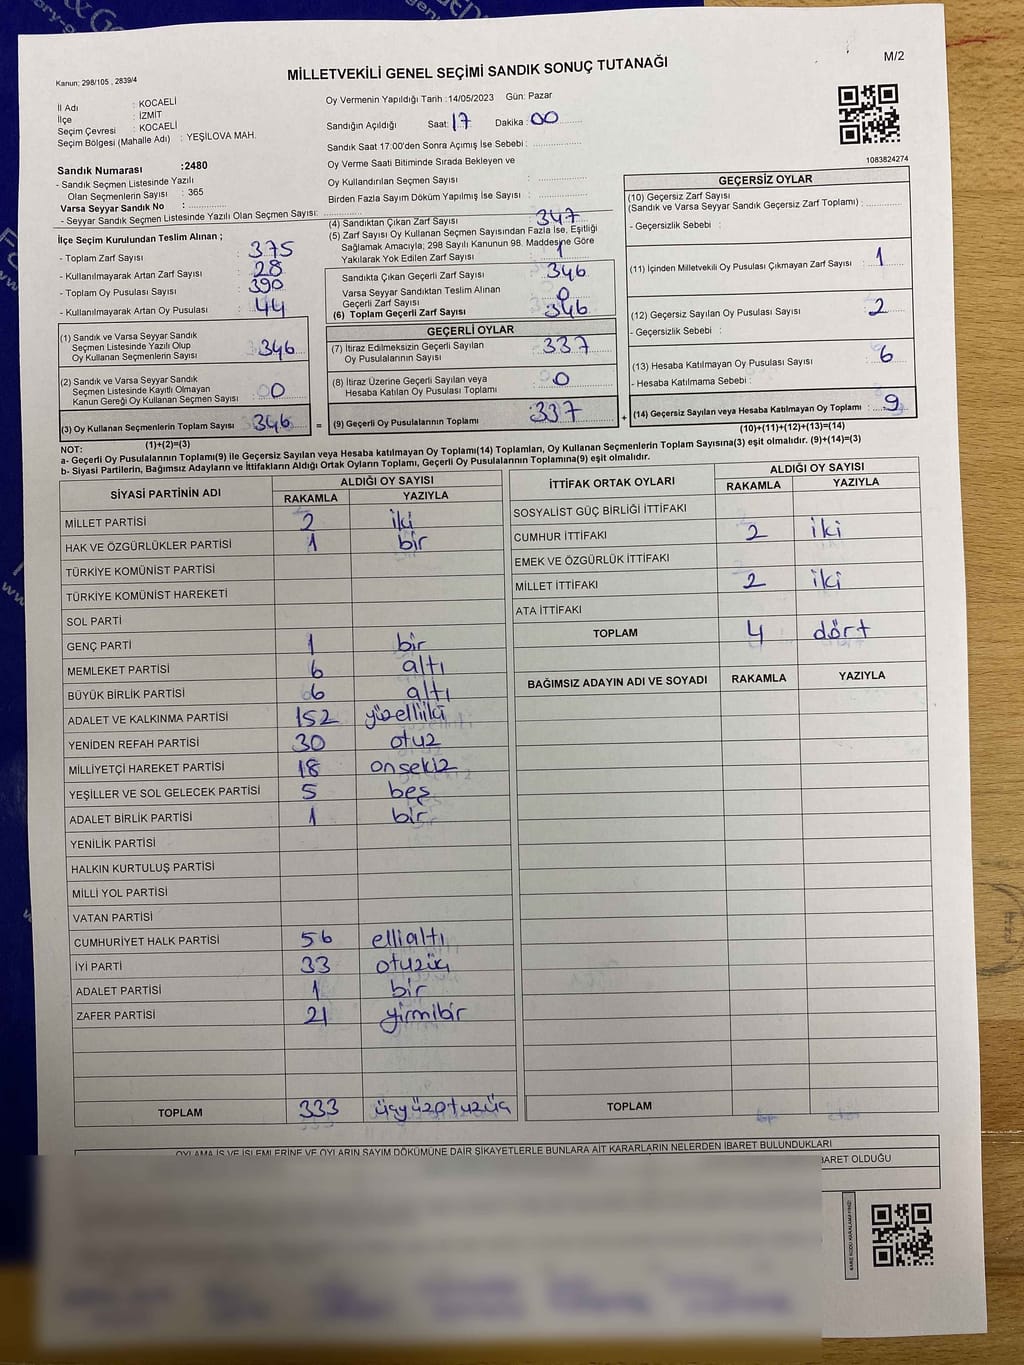 MİLLETVEKİLİ GENEL SEÇİMİ SANDIK SONUÇ TUTANAĞI
M/2
Kanun: 298/105 , 2839/4
İl Adı : KOCAELİ
İlçe : İZMİT
Seçim Çevresi : KOCAELİ
Seçim Bölgesi (Mahalle Adı) : YEŞİLOVA MAH.
Sandık Numarası :2480
- Sandık Seçmen Listesinde Yazılı
Olan Seçmenlerin Sayısı : 365
Varsa Seyyar Sandık No :
- Seyyar Sandık Seçmen Listesinde Yazılı Olan Seçmen Sayısı:
Oy Vermenin Yapıldığı Tarih :14/05/2023 Gün: Pazar
Sandığın Açıldığı Saat: 17 Dakika : 00
Sandık Saat 17:00'den Sonra Açımış İse Sebebi :
Oy Verme Saati Bitiminde Sırada Bekleyen ve
Oy Kullandırılan Seçmen Sayısı :
Birden Fazla Sayım Döküm Yapılmış İse Sayısı :
1083824274
İlçe Seçim Kurulundan Teslim Alınan ;
- Toplam Zarf Sayısı : 375
- Kullanılmayarak Artan Zarf Sayısı : 28
- Toplam Oy Pusulası Sayısı : 390
- Kullanılmayarak Artan Oy Pusulası : 44
(1) Sandık ve Varsa Seyyar Sandık
Seçmen Listesinde Yazılı Olup
Oy Kullanan Seçmenlerin Sayısı : 346
(2) Sandık ve Varsa Seyyar Sandık
Seçmen Listesinde Kayıtlı Olmayan
Kanun Gereği Oy Kullanan Seçmen Sayısı : 0
(3) Oy Kullanan Seçmenlerin Toplam Sayısı : 346
(1)+(2)=(3)
(4) Sandıktan Çıkan Zarf Sayısı : 347
(5) Zarf Sayısı Oy Kullanan Seçmen Sayısından Fazla İse, Eşitliği
Sağlamak Amacıyla; 298 Sayılı Kanunun 98. Maddesine Göre
Yakılarak Yok Edilen Zarf Sayısı : 1
Sandıkta Çıkan Geçerli Zarf Sayısı : 346
Varsa Seyyar Sandıktan Teslim Alınan
Geçerli Zarf Sayısı : 0
(6) Toplam Geçerli Zarf Sayısı : 346
GEÇERLİ OYLAR
(7) İtiraz Edilmeksizin Geçerli Sayılan
Oy Pusulalarının Sayısı : 337
(8) İtiraz Üzerine Geçerli Sayılan veya
Hesaba Katılan Oy Pusulası Toplamı : 0
= (9) Geçerli Oy Pusulalarının Toplamı : 337
GEÇERSİZ OYLAR
(10) Geçersiz Zarf Sayısı
(Sandık ve Varsa Seyyar Sandık Geçersiz Zarf Toplamı) :
- Geçersizlik Sebebi :
(11) İçinden Milletvekili Oy Pusulası Çıkmayan Zarf Sayısı : 1
(12) Geçersiz Sayılan Oy Pusulası Sayısı : 2
- Geçersizlik Sebebi :
(13) Hesaba Katılmayan Oy Pusulası Sayısı : 6
- Hesaba Katılmama Sebebi :
+ (14) Geçersiz Sayılan veya Hesaba Katılmayan Oy Toplamı : 9
(10)+(11)+(12)+(13)=(14)
NOT:
a- Geçerli Oy Pusulalarının Toplamı(9) ile Geçersiz Sayılan veya Hesaba katılmayan Oy Toplamı(14) Toplamları, Oy Kullanan Seçmenlerin Toplam Sayısına(3) eşit olmalıdır. (9)+(14)=(3)
b- Siyasi Partilerin, Bağımsız Adayların ve İttifakların Aldığı Ortak Oyların Toplamı, Geçerli Oy Pusulalarının Toplamına(9) eşit olmalıdır.
SİYASİ PARTİNİN ADI ALDIĞI OY SAYISI
RAKAMLA YAZIYLA
MİLLET PARTİSİ 2 iki
HAK VE ÖZGÜRLÜKLER PARTİSİ 1 bir
TÜRKİYE KOMÜNİST PARTİSİ
TÜRKİYE KOMÜNİST HAREKETİ
SOL PARTİ
GENÇ PARTİ 1 bir
MEMLEKET PARTİSİ 6 altı
BÜYÜK BİRLİK PARTİSİ 6 altı
ADALET VE KALKINMA PARTİSİ 152 yüzelliiki
YENİDEN REFAH PARTİSİ 30 otuz
MİLLİYETÇİ HAREKET PARTİSİ 18 onsekiz
YEŞİLLER VE SOL GELECEK PARTİSİ 5 beş
ADALET BİRLİK PARTİSİ 1 bir
YENİLİK PARTİSİ
HALKIN KURTULUŞ PARTİSİ
MİLLİ YOL PARTİSİ
VATAN PARTİSİ
CUMHURİYET HALK PARTİSİ 56 ellialtı
İYİ PARTİ 33 otuzüç
ADALET PARTİSİ 1 bir
ZAFER PARTİSİ 21 yirmibir
TOPLAM 333 üçyüzotuzüç
İTTİFAK ORTAK OYLARI ALDIĞI OY SAYISI
RAKAMLA YAZIYLA
SOSYALİST GÜÇ BİRLİĞİ İTTİFAKI
CUMHUR İTTİFAKI 2 iki
EMEK VE ÖZGÜRLÜK İTTİFAKI
MİLLET İTTİFAKI 2 iki
ATA İTTİFAKI
TOPLAM 4 dört
BAĞIMSIZ ADAYIN ADI VE SOYADI RAKAMLA YAZIYLA
TOPLAM
OYLAMA İŞ VE İŞLEMLERİNE VE OYLARIN SAYIM DÖKÜMÜNE DAİR ŞİKAYETLERLE BUNLARA AİT KARARLARIN NELERDEN İBARET BULUNDUKLARI
BARET OLDUĞU